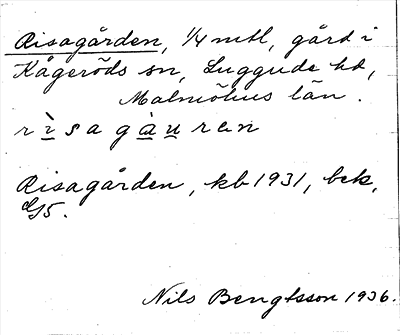 Risagården, 1/4 mtl, gård i
Kågeröds sn, Luggude hd,
Malmöhus län.
rìsagàuren
Risagården, kb 1931, bek,
5.
Nils Bengtsson 1936.